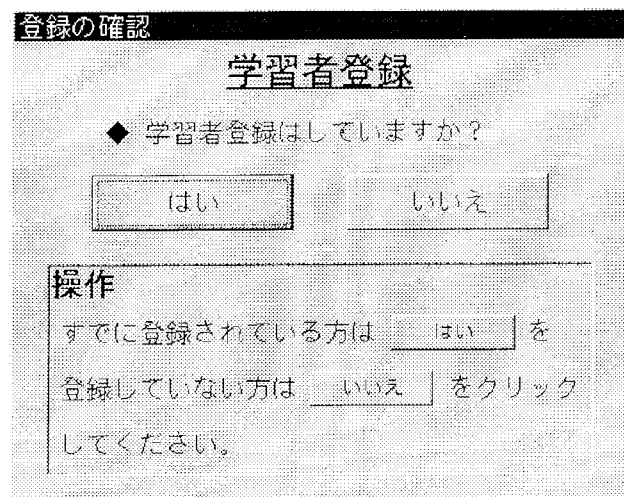 登録の確認
学習者登録
◆ 学習者登録はしていますか？
はい いいえ
操作
すでに登録されている方は はい を
登録していない方は いいえ をクリック
してください。